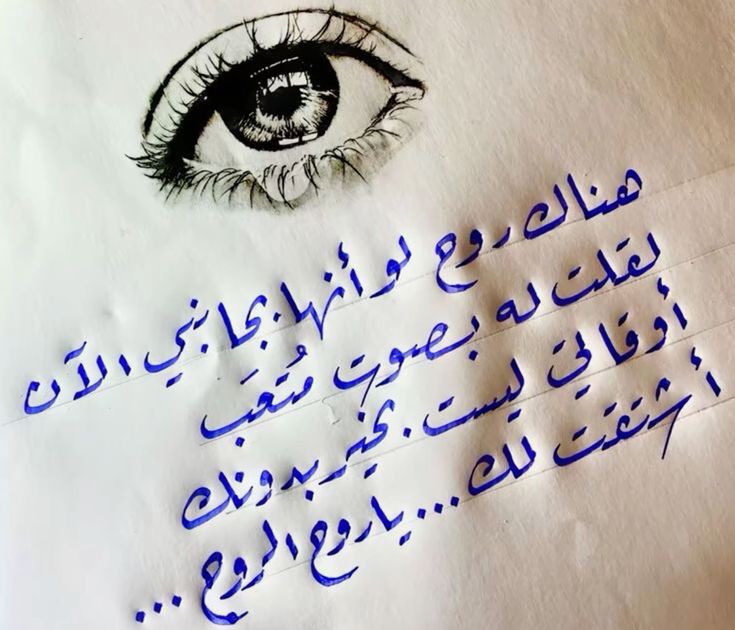 هناك روح لو أنها بجانبي الآن
لقلت له بصوت مُتعَب
أوقاتي ليست بخير بدونك
أشتقت لك... ياروح الروح ...